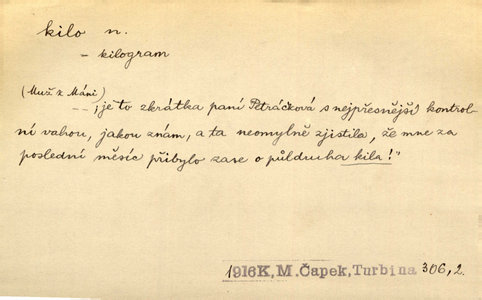 kilo n.
– kilogram
(Muž z Máni)
– – „je to zkrátka paní Petráčková s nejpřesnější kontrol-
ní vahou, jakou znám, a ta neomylně zjistila, že mne za
poslední měsíc přibylo zase o půldruha kila!"
1916 K. M. Čapek, Turbina 306, 2.